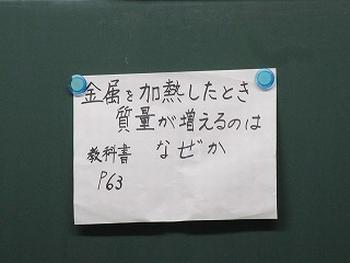 金属を加熱したとき
質量が増えるのは
なぜか
教科書
P63